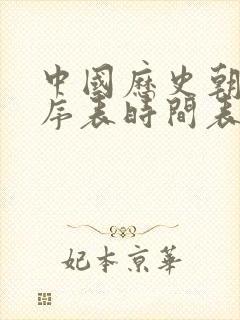 中國歷史朝
序表時間表
妃本京華